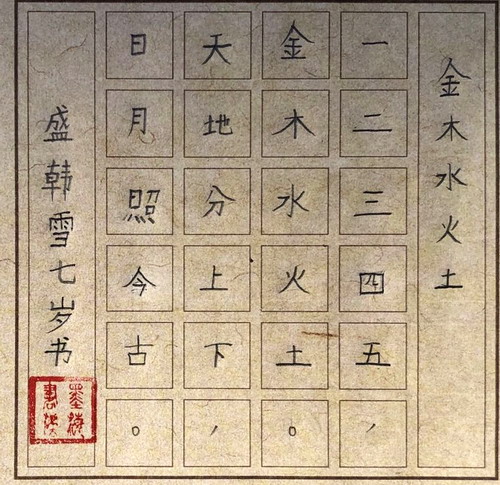 金木水火土
一二三四五，
金木水火土。
天地分上下，
日月照今古。
盛韩雪七岁书